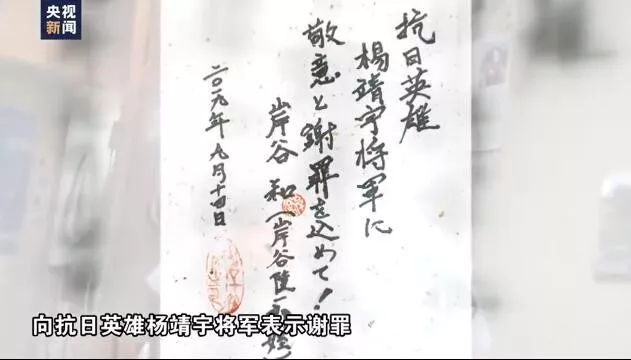 央视
新闻
抗日英雄
楊靖宇将軍に
敬意と謝罪を込めて!
岸谷 和 (岸谷隆一
二〇一九年九月十四日
向抗日英雄杨靖宇将军表示谢罪